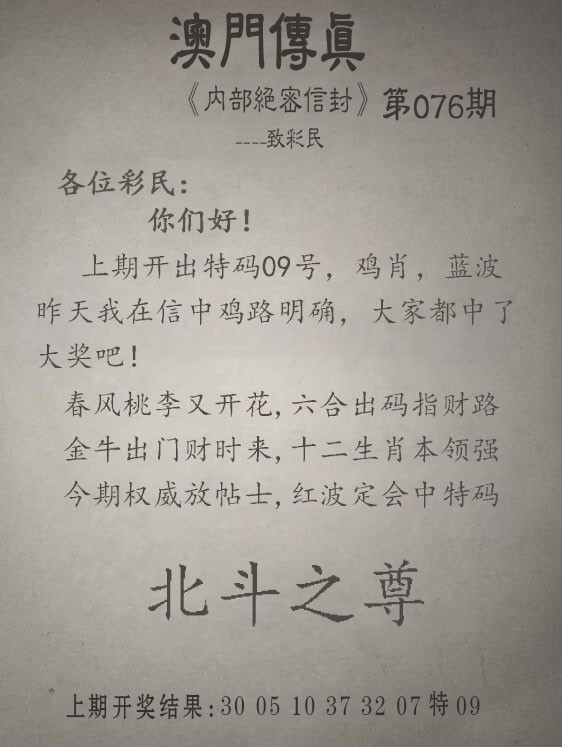 澳門傳真
《内部絕密信封》第076期
----致彩民
各位彩民：
你们好！
上期开出特码09号，鸡肖，蓝波
昨天我在信中鸡路明确，大家都中了
大奖吧！
春风桃李又开花,六合出码指财路
金牛出门财时来,十二生肖本领强
今期权威放帖士,红波定会中特码
北斗之尊
上期开奖结果:30 05 10 37 32 07特09